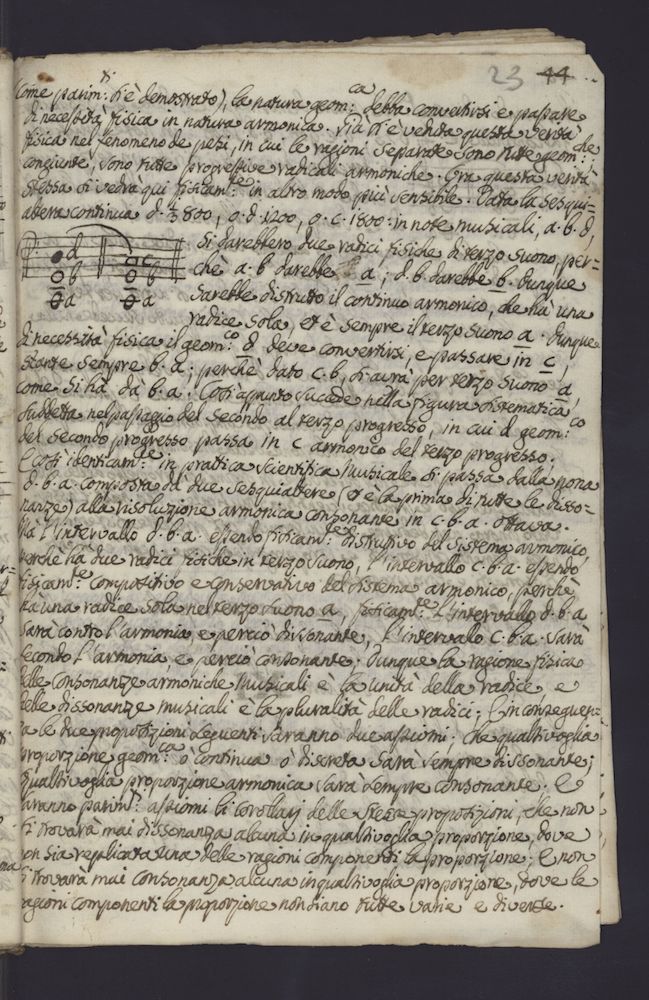 23 44
Come parim:ti s'è demostrato), la natura geom:ca debba convertirsi e passare
di necessità fisica in natura armonica. Già si è veduta questa verità
fisica nel fenomeno de pesi, in cui le ragioni separate sono tutte geom:che;
congiunte, sono tutte progressive radicali armoniche. Ora questa verità
stessa si vedrà qui fisicam:te in altro modo più sensibile. Data la sesqui=
altera continua d. 800, o. d. 1200, o. c. 1800: in note musicali, a. b. d,
si darebbero due radici fisiche di terzo suono, per=
d
b
a
c
b
a
chè a. b darebbe a; d. b. darebbe b. Dunque
sarebbe distrutto il continuo armonico, che hà una
radice sola, et è sempre il terzo suono a. Dunque
di necessità fisica il geom:co d deve convertirsi, e passare in c,
stante sempre b. a; perchè dato c. b, si avrà per terzo suono a,
come si hà dà b. a. Così appunto succede nella figura sistematica
suddetta nel passaggio del secondo al terzo progresso, in cui d geom:co
del secondo progresso passa in c armonico del terzo progresso.
E così identicam:te in prattica scientifica Musicale si passa dalla nona
d. b. a. composta dà due sesquialtere (et è la prima di tutte le disso=
nanze) alla risoluzione armonica consonante in c. b. a. ottava.
Mà l'intervallo d. b. a. essendo fisicam:te distruttivo del sistema armonico,
perchè hà due radici fisiche in terzo suono, l'intervallo c. b. a. essendo
fisicam:te compositivo e conservativo del sistema armonico, perchè
hà una radice sola nel terzo suono a, fisicam:te l'intervallo d. b. a
sarà contro l'armonia, e perciò dissonante, l'intervallo c. b. a. sarà
secondo l'armonia, e perciò consonante. Dunque la ragione fisica
delle consonanze armoniche Musicali è la unità della radice, e
delle dissonanze musicali è la pluralità delle radici; E in conseguen=
za le due proposizioni seguenti saranno due assiomi; che qualsivoglia
proporzione geom:ca ò continua ò discreta sarà sempre dissonante;
qualsivoglia proporzione armonica sarà sempre consonante. E
saranno parim:ti assiomi li corollarj delle stesse proposizioni, che non
si trovarà mai dissonanza alcuna in qualsivoglia proporzione, dove
non sia replicata una delle ragioni componenti la proporzione; E non
si trovarà mai consonanza alcuna in qualsivoglia proporzione, dove le
ragioni componenti la proporzione non siano tutte varie e diverse.